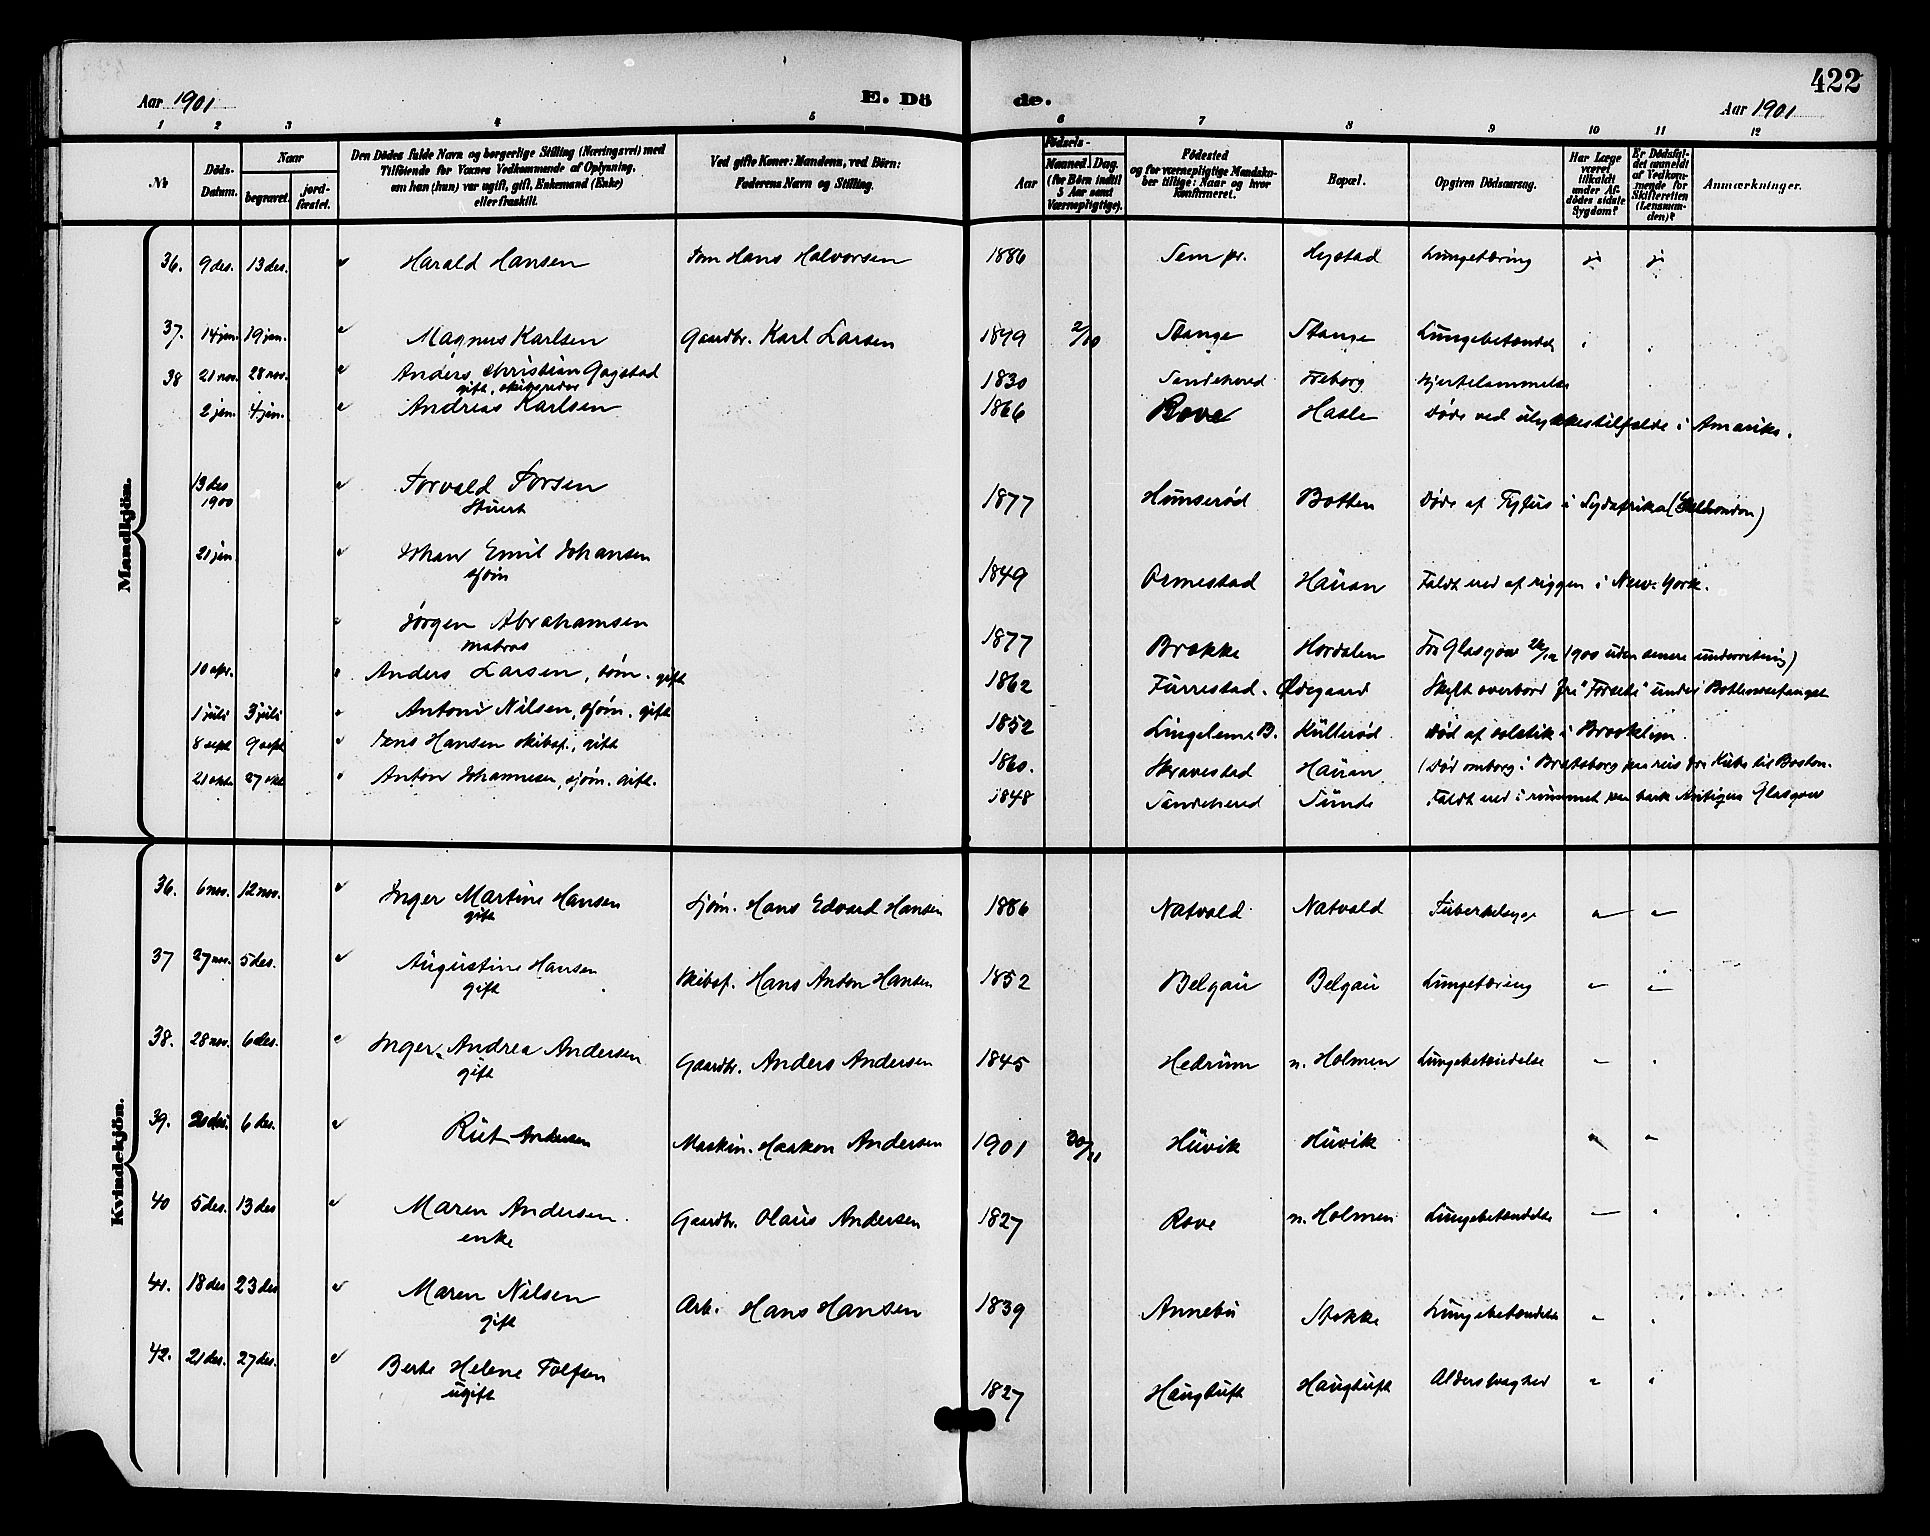 422
Aar 1901 E. Dö de. Aar 1901
1 2 3 4 5 6 7 8 9 10 11 12
№ Döds-Datum. Naar begravet. jord-fæstet. Den Dödes fulde Navn og borgerlige Stilling (Næringsvei) med Tilföiende for Voxnes Vedkommende af Oplysning, om han (hun) var ugift, gift, Enkemand (Enke) eller fraskilt. Ved gifte Koner: Mandens, ved Börn: Faderens Navn og Stilling. Födsels- Aar Maaned. Dag. (for Börn indtil 5 Aar samt Værnepligtige). Födested og for værnepligtige Mandskaber tillige: Naar og hvor Konfirmeret. Bopæl. Opgiven Dödsaarsag. Har Læge været tilkaldt under Afdödes sidste Sygdom? Er Dödsfaldet anmeldt af Vedkommende for Skifteretten (Lensmanden)? Anmærkninger.
Mandkjön.
36. 9 des. 13 des. Harald Hansen Hans Halvorsen 1886 Sem pr. Hystad Lungetæring ja ja
37. 14 jan. 19 jan. Magnus Karlsen Gaardbr. Karl Larsen 1899 2/10 Stange Stange Lungebetændelse
38 21 nov. 28 nov. Anders Christian Gogstad 1830 Sandehered Freberg Hjertelammelse
gift, skibsreder
2 jan. 4 jan. Andreas Karlsen 1866 Rove Hasle Døde ved ulykkestilfælde i Amerika.
13 des 1900 Torvald Torsen 1877 Hunserød Botten Døde af Tyfus i Sydafrika
Stuert
21 jan Johan Emil Johansen 1849 Ormestad Hauan Faldt ned af riggen i New-York.
sjøm
Jørgen Abrahamsen 1877 Brekke Hordalen Fra Glasgow 1900 uden senere underretning)
matros
10 apr. Anders Larsen, søm. gift 1862 Furrestad. Ødegaard Skylt overbord fra "Forseti" under Bottlenosefangst
1 juli 3 juli Anton Nilsen, sjøm. gift 1852 Lingelem B. Küllerød Død af solstik i Brooklyn.
8 sept 9 sept Jens Hansen skibsf., gift 1860. Skravestad Hauan (Død ombord i Bratsborg paa reis fra Kuba til Boston.
21 okt 27 okt Anton Johannesen, sjøm. gift. 1848 Sandehered Sunde Faldt ned i rummet paa bark Antigua Glasgow
Kvindekjön.
36. 6 nov. 12 nov. Inger Martine Hansen Sjøm. Hans Edvard Hansen 1886 Natvald Natvald
gift
37 27 nov. 5 des. Augustine Hansen Skibsf. Hans Anton Hansen 1852 Belgau Belgau Lungetæring
gift
38. 28 nov. 6 des. Inger Andrea Andersen Gaardbr. Anders Andersen 1845 Hedrum n. Holmen Lungebetændelse
gift
39. 6 des. Rut Andersen Maskin. Haakon Andersen 1901 30/11 Huvik Huvik
40 5 des. 13 des Maren Andersen Gaardbr. Olaus Andersen 1827 Rove n. Holmen Lungebetændelse
enke
41. 18 des 23 des Maren Nilsen Arb. Hans Hansen 1839 Annebu Stokke Lungebetændelse
gift
42. 21 des. 27 des. Berte Helene Tolfsen 1827 Haugtuft Haugtuft Alderssvaghed
ugift